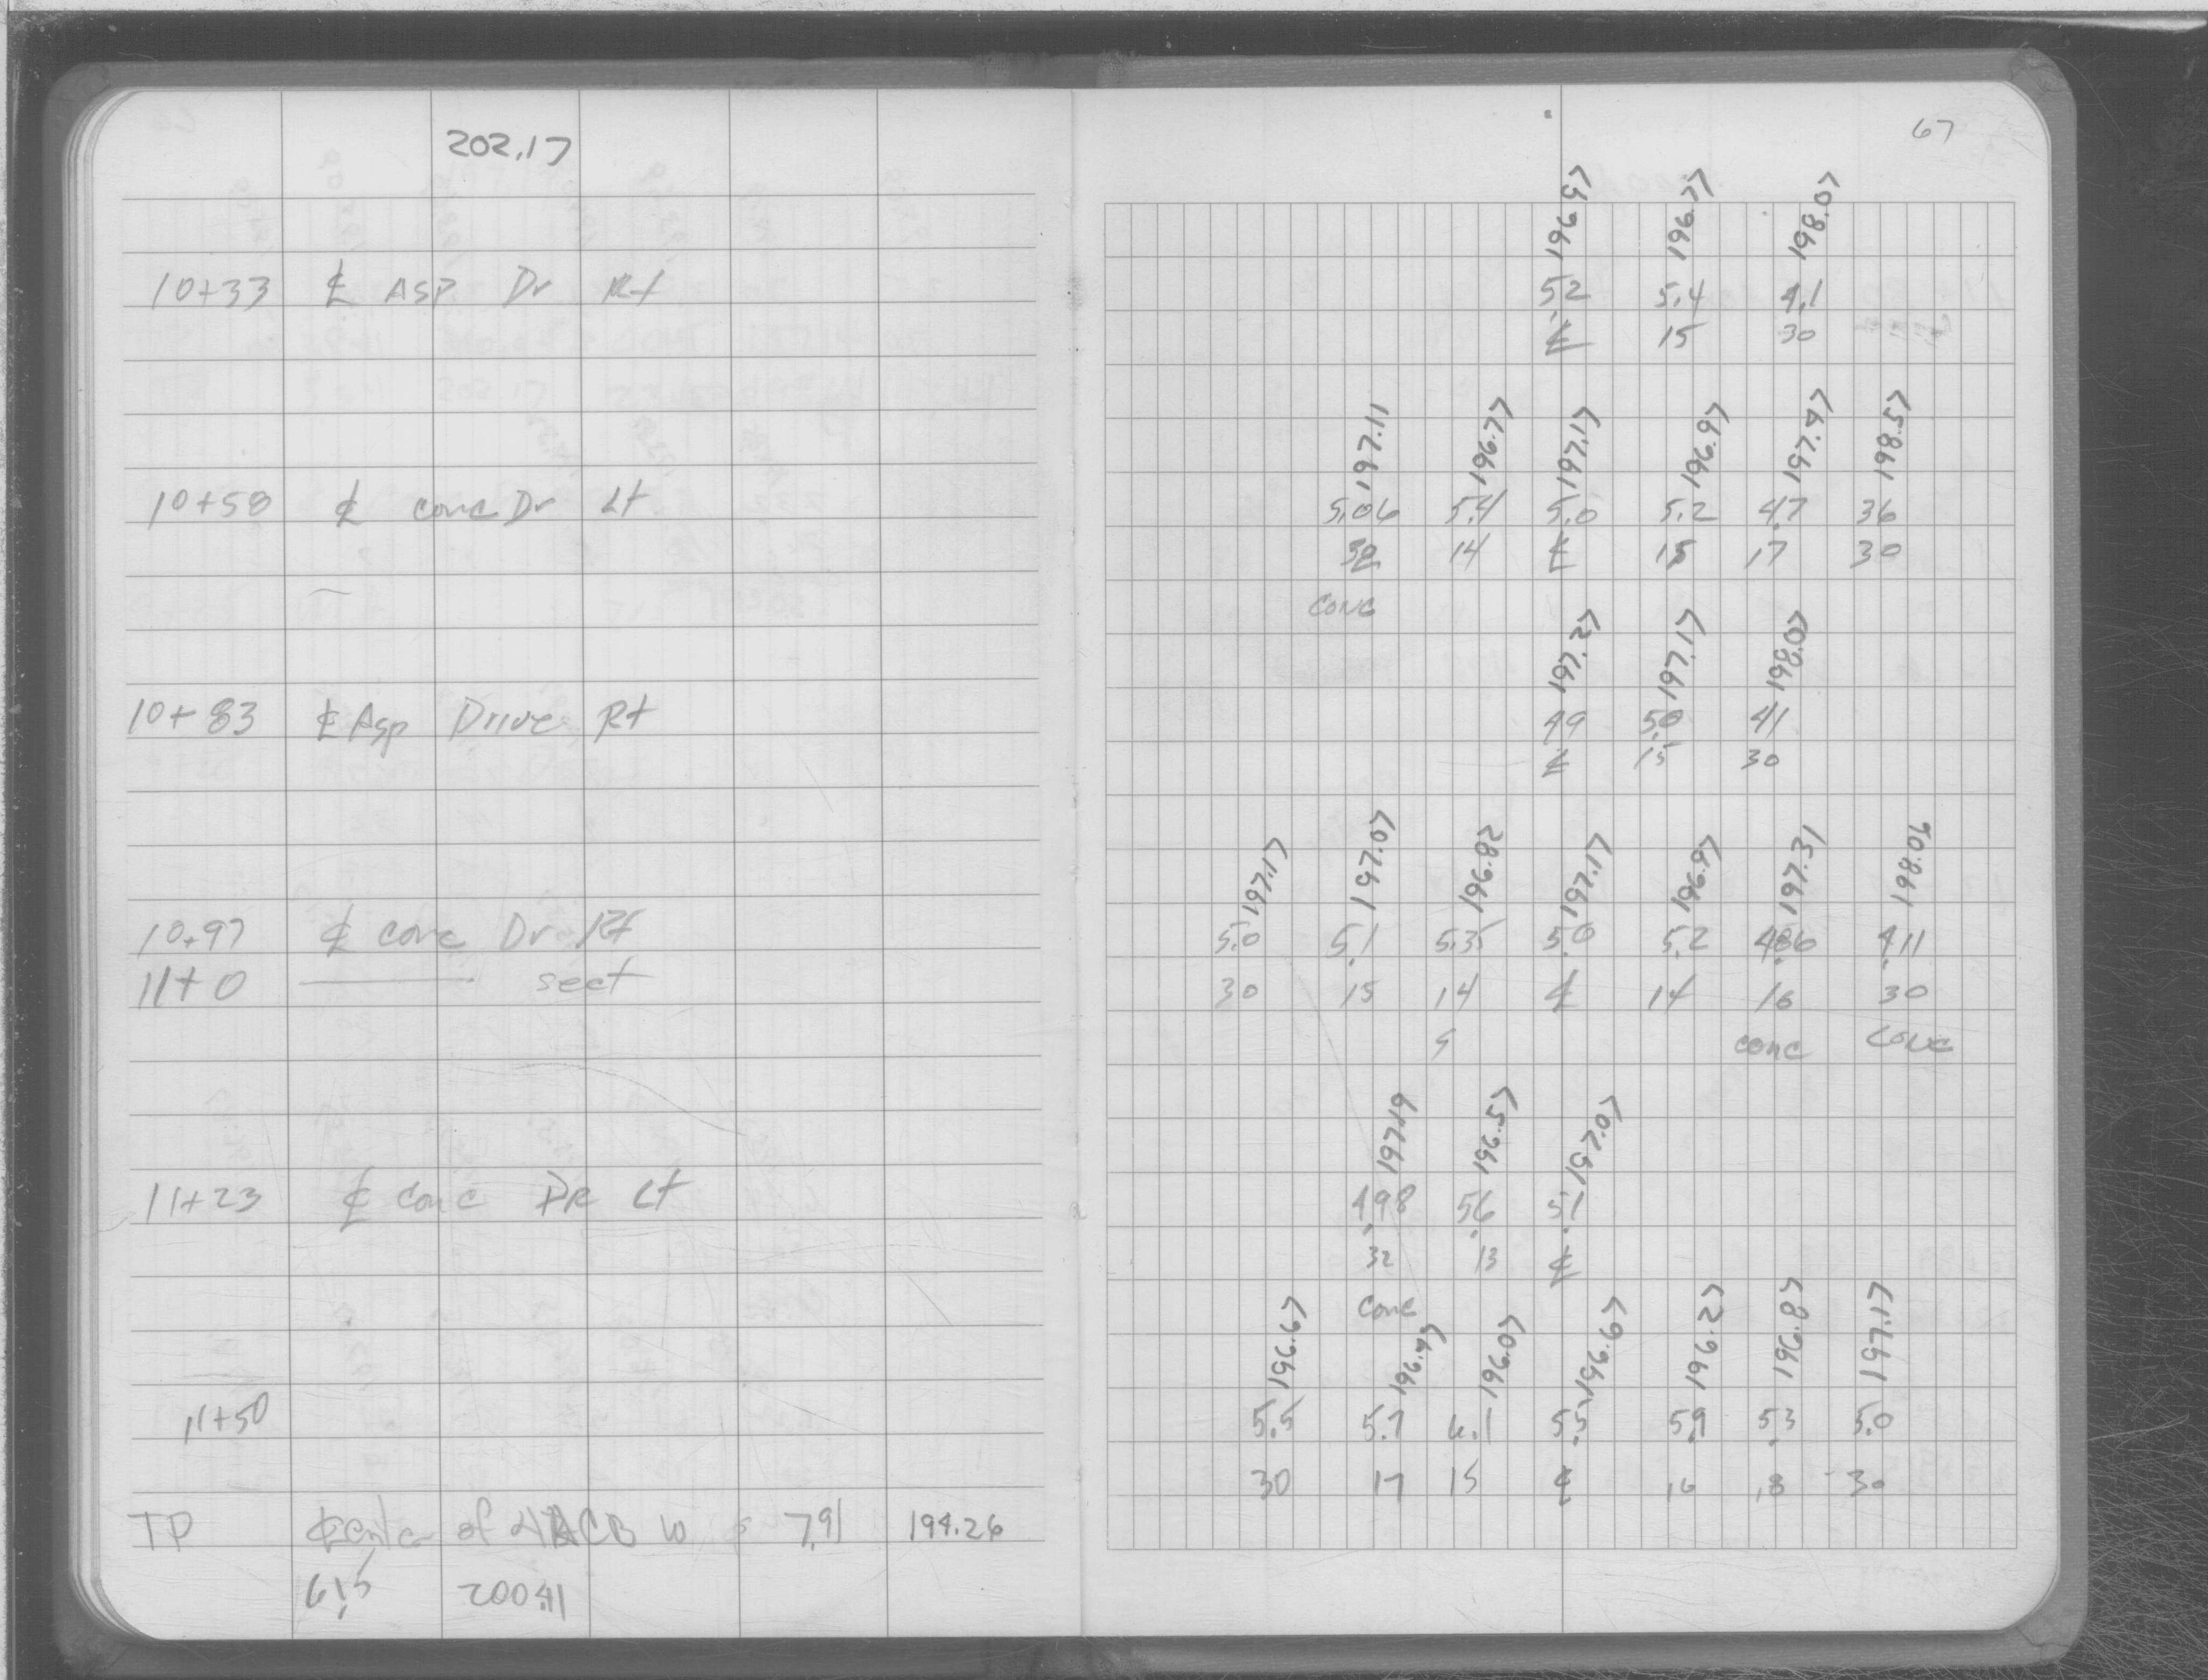 202.17
67
196.97 196.77 198.07
10+33 ℄ ASP Dr Rt 5.2 5.4 4.1
℄ 15 30
197.11 196.77 197.17 196.97 197.47 198.57
10+58 ℄ conc Dr Lt 5.06 5.4 5.0 5.2 4.7 36
℄ 15 17 30 14
conc
197.27 197.17 198.07
10+83 ℄ Asp Drive Rt 49 5.0 41
℄ 15 30
197.17 197.07 196.82 197.17 196.97 197.31 198.06
10+97 ℄ conc Dr Rt 5.0 5.1 5.35 5.0 5.2 4.86 4.11
11+0 —— sect 30 15 14 ℄ 14 16 30
conc conc
197.19 196.57 197.07
11+23 ℄ conc DR Lt 4.98 5.6 5.1
32 13 ℄
conc
196.67 196.47 196.07 196.67 196.27 196.87 197.17
11+50 5.5 5.7 6.1 5.5 5.9 5.3 5.0
30 17 15 ℄ 16 18 30
TP of 7.91 194.26
6.15 200.41